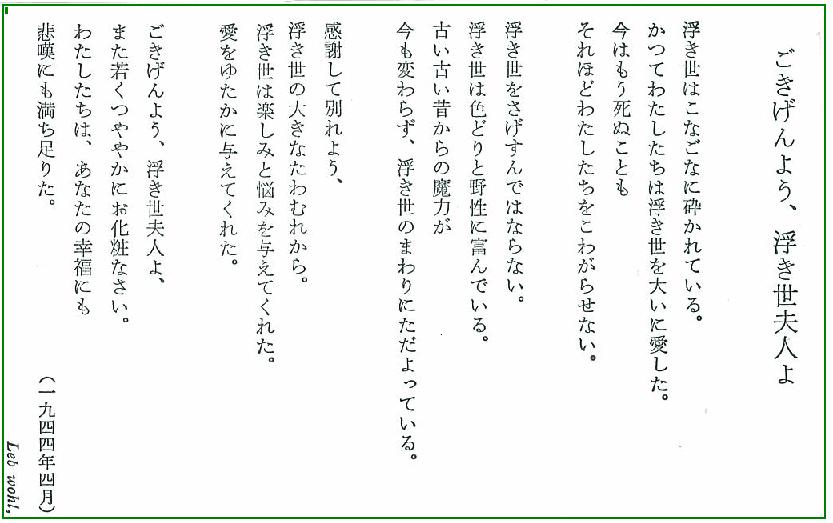 ごきげんよう、浮き世夫人よ
浮き世はこなごなに砕かれている。
かつてわたしたちは浮き世を大いに愛した。
今はもう死ぬことも
それほどわたしたちをこわがらせない。
浮き世をさげすんではならない。
浮き世は色どりと野性に富んでいる。
古い古い昔からの魔力が
今も変わらず、浮き世のまわりにただよっている。
感謝して別れよう、
浮き世の大きなたわむれから。
浮き世は楽しみと悩みを与えてくれた。
愛をゆたかに与えてくれた。
ごきげんよう、浮き世夫人よ、
また若くつややかにお化粧なさい。
わたしたちは、あなたの幸福にも
悲嘆にも満ち足りた。
（一九四四年四月）
Leb wohl,